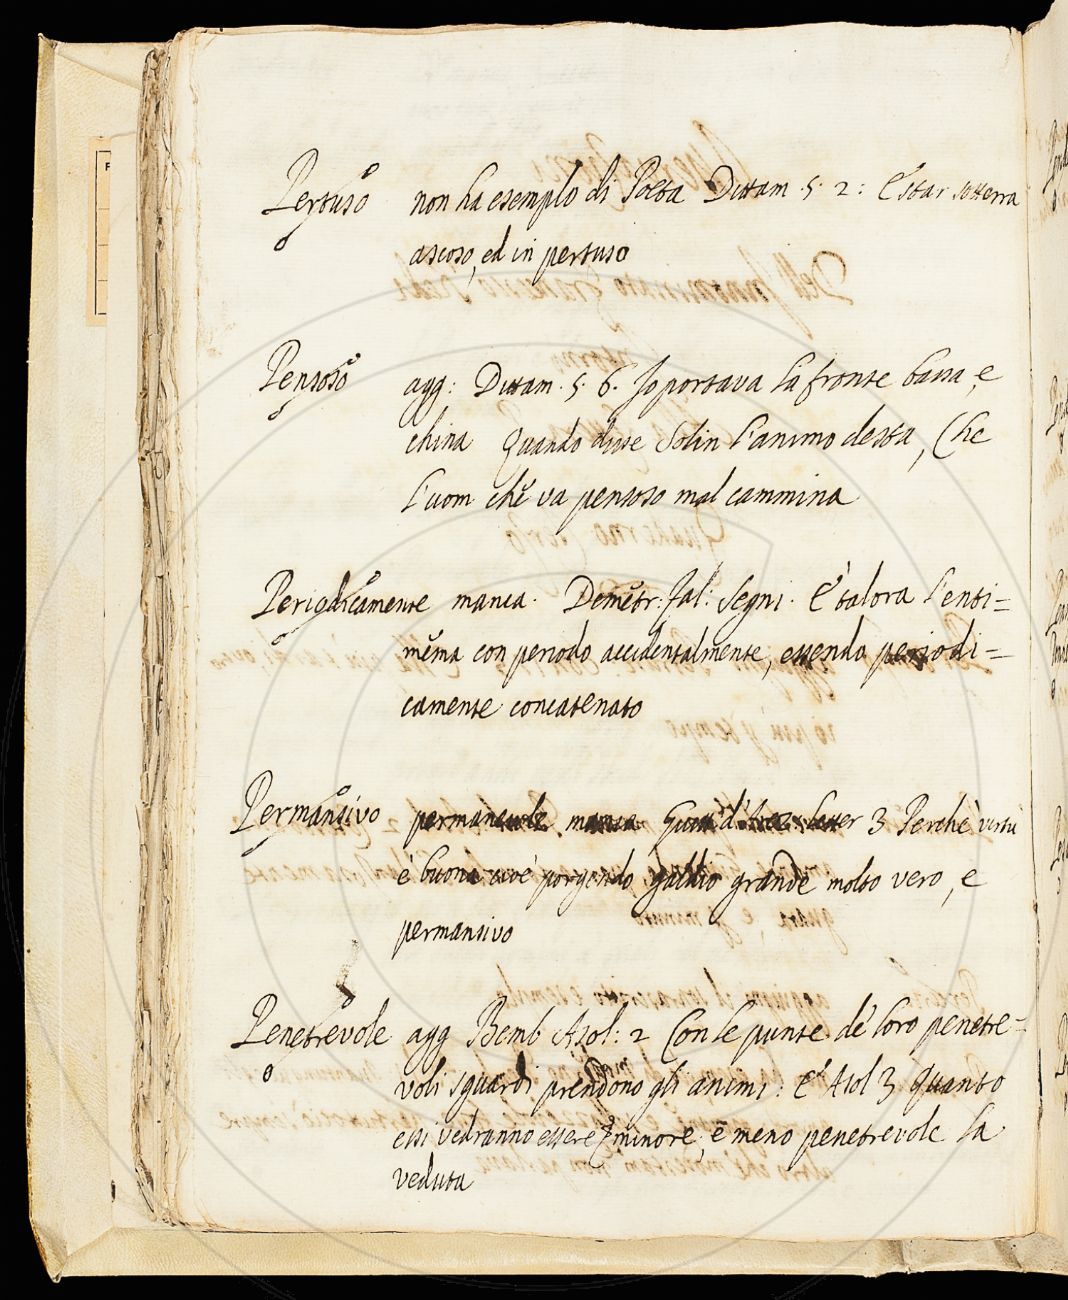 Pertuso non ha esemplo di Poeta Dittam. 5. 2: E star sotterra
ascoso, ed in pertuso
Pensoso agg: Dittam. 5. 6. Jo portava la fronte bassa, e
china Quando disse Solin l'animo desta, Che
l'uom chè va pensoso mal cammina
Periodicamente manca. Demetr: Fal: Segni. E talora l'enti=
mema con periodo accidentalmente, essendo periodi=
camente concatenato
Permansivo permanevole manca Guid d'Arez. Letter 3 Perchè vertù
è buona cioè porgendo gaudio grande molto vero, e
permansivo
Penetrevole agg Bemb Asol: 2 Con le punte de' loro penetre=
voli sguardi prendono gli animi: E Asol 3 quanto
essi vedranno essere minore, e meno penetrevole la
veduta